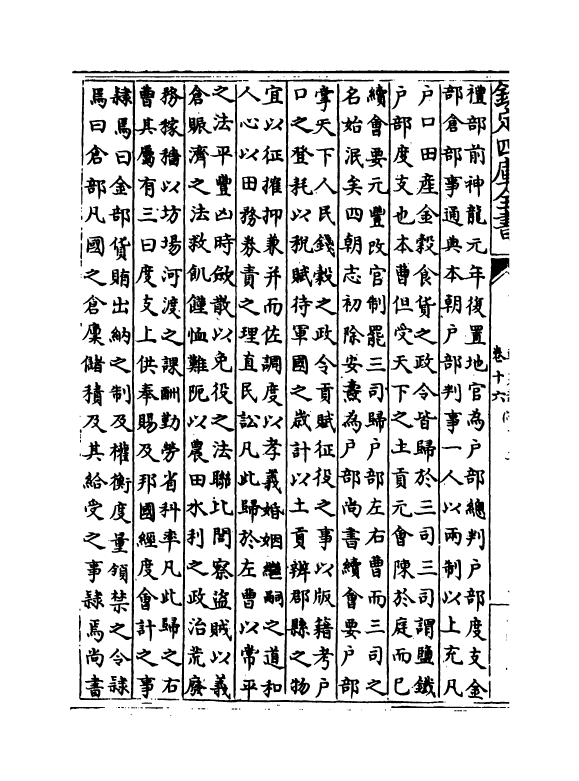 欽定四庫全書
卷十六
禮部前神龍元年復置地官為户部總判户部度支金
部倉部事通典本朝户部判事一人以兩制以上充凡
户口田産金榖食貨之政令皆歸於三司三司謂鹽鐵
户部度支也本曹但受天下之土貢元會陳於庭而已
續會要元豐改官制罷三司歸户部左右曹而三司之
名始泯矣四朝志初除安燾為户部尚書續會要户部
掌天下人民錢榖之政令貢賦征役之事以版籍考户
口之登耗以税賦待軍國之歲計以土貢辨郡縣之物
宜以征搉抑兼并而佐調度以孝義婚姻繼嗣之道和
人心以田務券責之理直民訟凡此歸於左曹以常平
之法平豐凶時斂散以免役之法聯比閭察盗賊以義
倉賑濟之法救飢饉恤難阨以農田水利之政治荒廢
務稼穡以坊場河渡之課酬勤勞省科率凡此歸之右
曹其屬有三曰度支上供奉賜及邦國經度㑹計之事
隸焉曰金部貨賄出納之制及權衡度量領禁之令隸
焉曰倉部凡國之倉廩儲積及其給受之事隸焉尚書